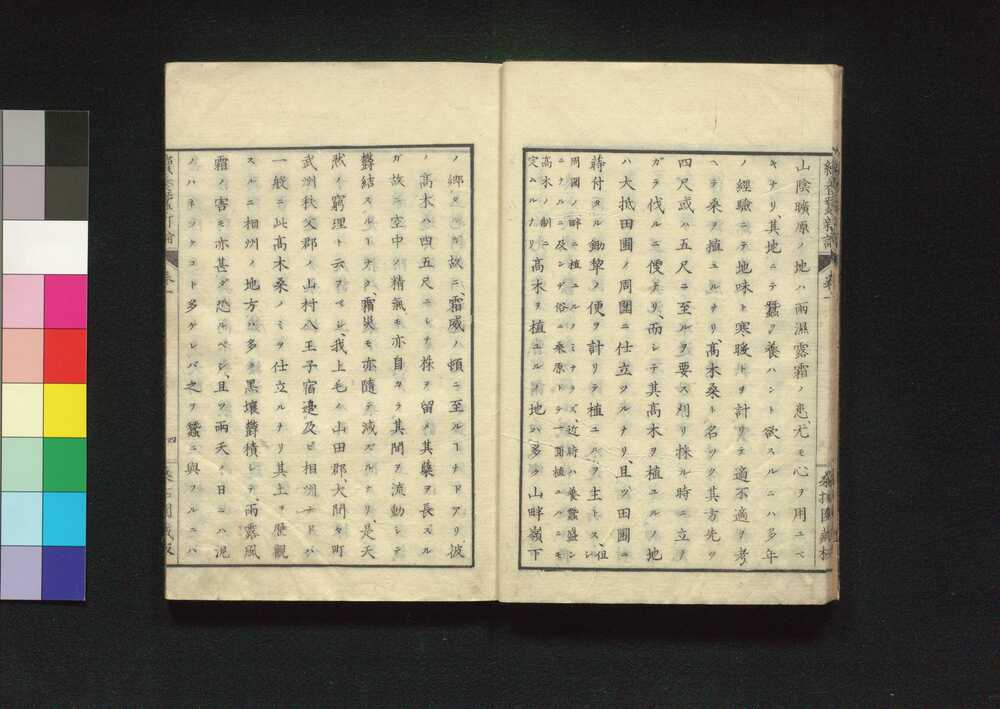 山陰曠原ノ地ハ雨濕露霜ノ患尤モ心ヲ用ユベ
キナリ、其地ニテ蠶ヲ養ハント欲スルニハ多年
ノ經驗ニテ地味ト寒暖トヲ計リテ適不適ヲ考
ヘテ桑ヲ植ユルナリ、髙木桑ト名ツク其方先ツ
四尺或ハ五尺ニ至ルヲ要ス刈リ採ル時ニ立ヲ
ガラ伐ルニ便ナリ、而シテ其髙木ヲ植ユルノ地
ハ大抵田圃ノ周圍ニ仕立ツルナリ、且ツ田圃ニ
蒔付タル鋤犂ノ便ヲ計リテ植ユルヲ主トス、但シ
用圃ノ畔ニ植ユルノミナラズ、近時ハ養蠶盛ン
ニナルニ及ンデ俗ニ桑原トテ一面植ユルニモ
髙木ノ制ニ
定ムルナリ
髙木ヲ植ユルノ地ハ多ク山畔嶺下
ノ郷タルガ故ニ、霜威ノ頓ニ至ルヿナドアリ、彼
ノ髙木ハ四五尺ニシテ株ヲ留メ其蘖ヲ長スル
ガ故ニ空中ノ精氣モ亦自カラ其間ヲ流動シテ
欝結スルヿナク、霜災モ亦隨テ減ズルナリ是天
然ノ窮理ト云フベシ、我上毛ハ山田郡、大間々町
武州秩父郡ノ山村八王子宿邉及ビ相州ナドハ
一般ニ此髙木桑ノミヲ仕立ルナリ其土ヲ歴觀
スルニ相州ノ地方ハ多ク黒壤欝積シテ、雨露風
霜ノ害モ亦甚ダ恐ルベシ、且ツ雨天ノ日ニハ泥
ノハネツクコト多ケレバ之ヲ蠶ニ與フルニハ
卷一
四